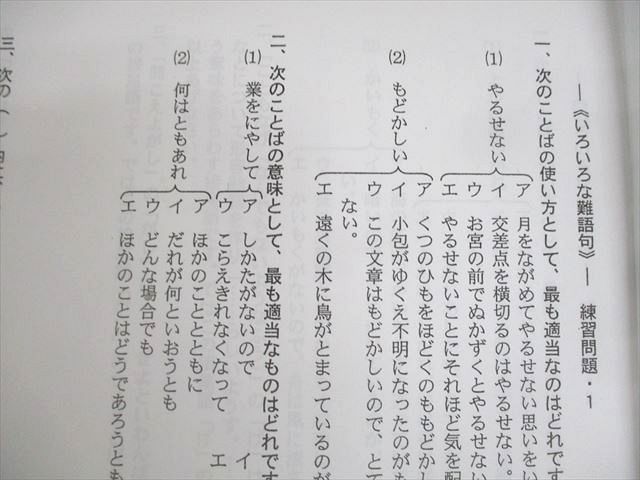 ―《いろいろな難語句》― 練習問題・1
一、次のことばの使い方として、最も適当なのはどれです
(1) やるせない
ア 月をながめてやるせない思いをい
イ 交差点を横切るのはやるせない。
ウ お宮の前でぬかずくとやるせない
エ やるせないことにそれほど気を配
(2) もどかしい
ア くつのひもをほどくのももどかし
イ 小包がゆくえ不明になったのがも
ウ この文章はもどかしいので、とて
ない。
エ 遠くの木に鳥がとまっているのが
二、次のことばの意味として、最も適当なものはどれです
(1) 業をにやして
ア しかたがないので イ
ウ こらえきれなくなって エ
(2) 何はともあれ
ア ほかのことともに
イ だれが何といおうとも
ウ どんな場合でも
エ ほかのことはどうであろうとも
三、次の